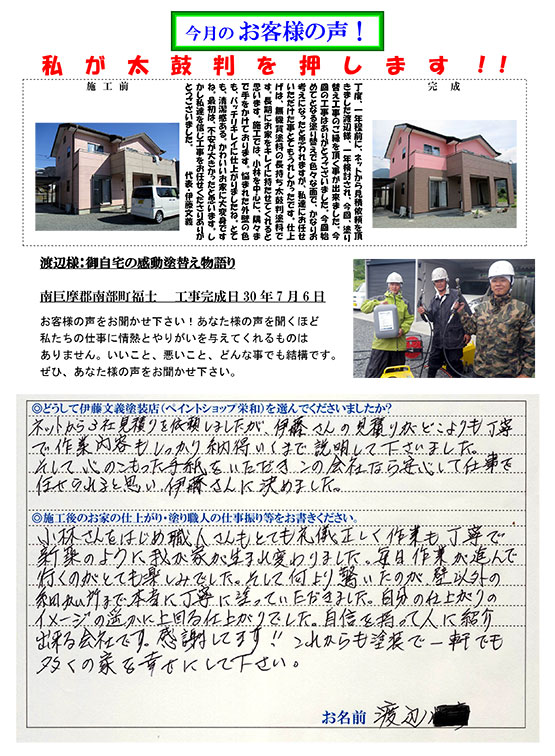 今月の お客様の声！
私が太鼓判を押します!!
施工前
完成
丁度、一年程前に、ネットから見積依頼を頂
きました渡辺様、一年検討され、今回、塗り
替え工事のご縁を頂く事が出来ました。今
回の工事はありがとうございました。今回始
めてとなる塗り替えで色々な面で、かなりお
考えになったと思われますが、私達にお任せ
いただけた事とてもうれしかったです。仕上
げは、無機質塗料の長持ち太鼓判塗料で
す。長期にお家をキレイに持たせてくれると
思います。施工では、小林を中心に、隅々ま
で手をかけております。悩まれた外壁の色
も、バッチリキレイに仕上がりましたね。とて
も、清潔感ある、かわいいお家に大変身です
ね。最初は、不安も大きかったと思います。し
かし私達を信じ工事をお任せくださりありが
とうございました。 代表・伊藤文義
渡辺様：御自宅の感動塗替え物語り
南巨摩郡南部町福士 工事完成日30年7月6日
お客様の声をお聞かせ下さい！あなた様の声を聞くほど
私たちの仕事に情熱とやりがいを与えてくれるものは
ありません。いいこと、悪いこと、どんな事でも結構です。
ぜひ、あなた様の声をお聞かせ下さい。
◎どうして伊藤文義塗装店（ペイントショップ栄和）を選んでくださいましたか？
ネットから3社見積りを依頼しましたが、伊藤さんの見積りがどこよりも丁寧
で作業内容もしっかり納得いくまで説明して下さいました。
そして心のこもった手紙をいただき、この会社なら安心して仕事を
任せられると思い、伊藤さんに決めました。
◎施工後のお家の仕上がり・塗り職人の仕事振り等をお書きください。
小林さんをはじめ職人さんもとても礼儀正しく作業も丁寧で
新築のように我が家が生まれ変わりました。毎日作業が進んで
行くのがとても楽しみでした。そして何より驚いたのが、壁以外の
細かい所まで本当に丁寧に塗っていただきました。自分の仕上がりの
イメージの遥かに上回る仕上がりでした。自信を持って人に紹介
出来る会社です。感謝してます!! これからも塗装で一軒でも
多くの家を幸せにして下さい。
お名前 渡辺